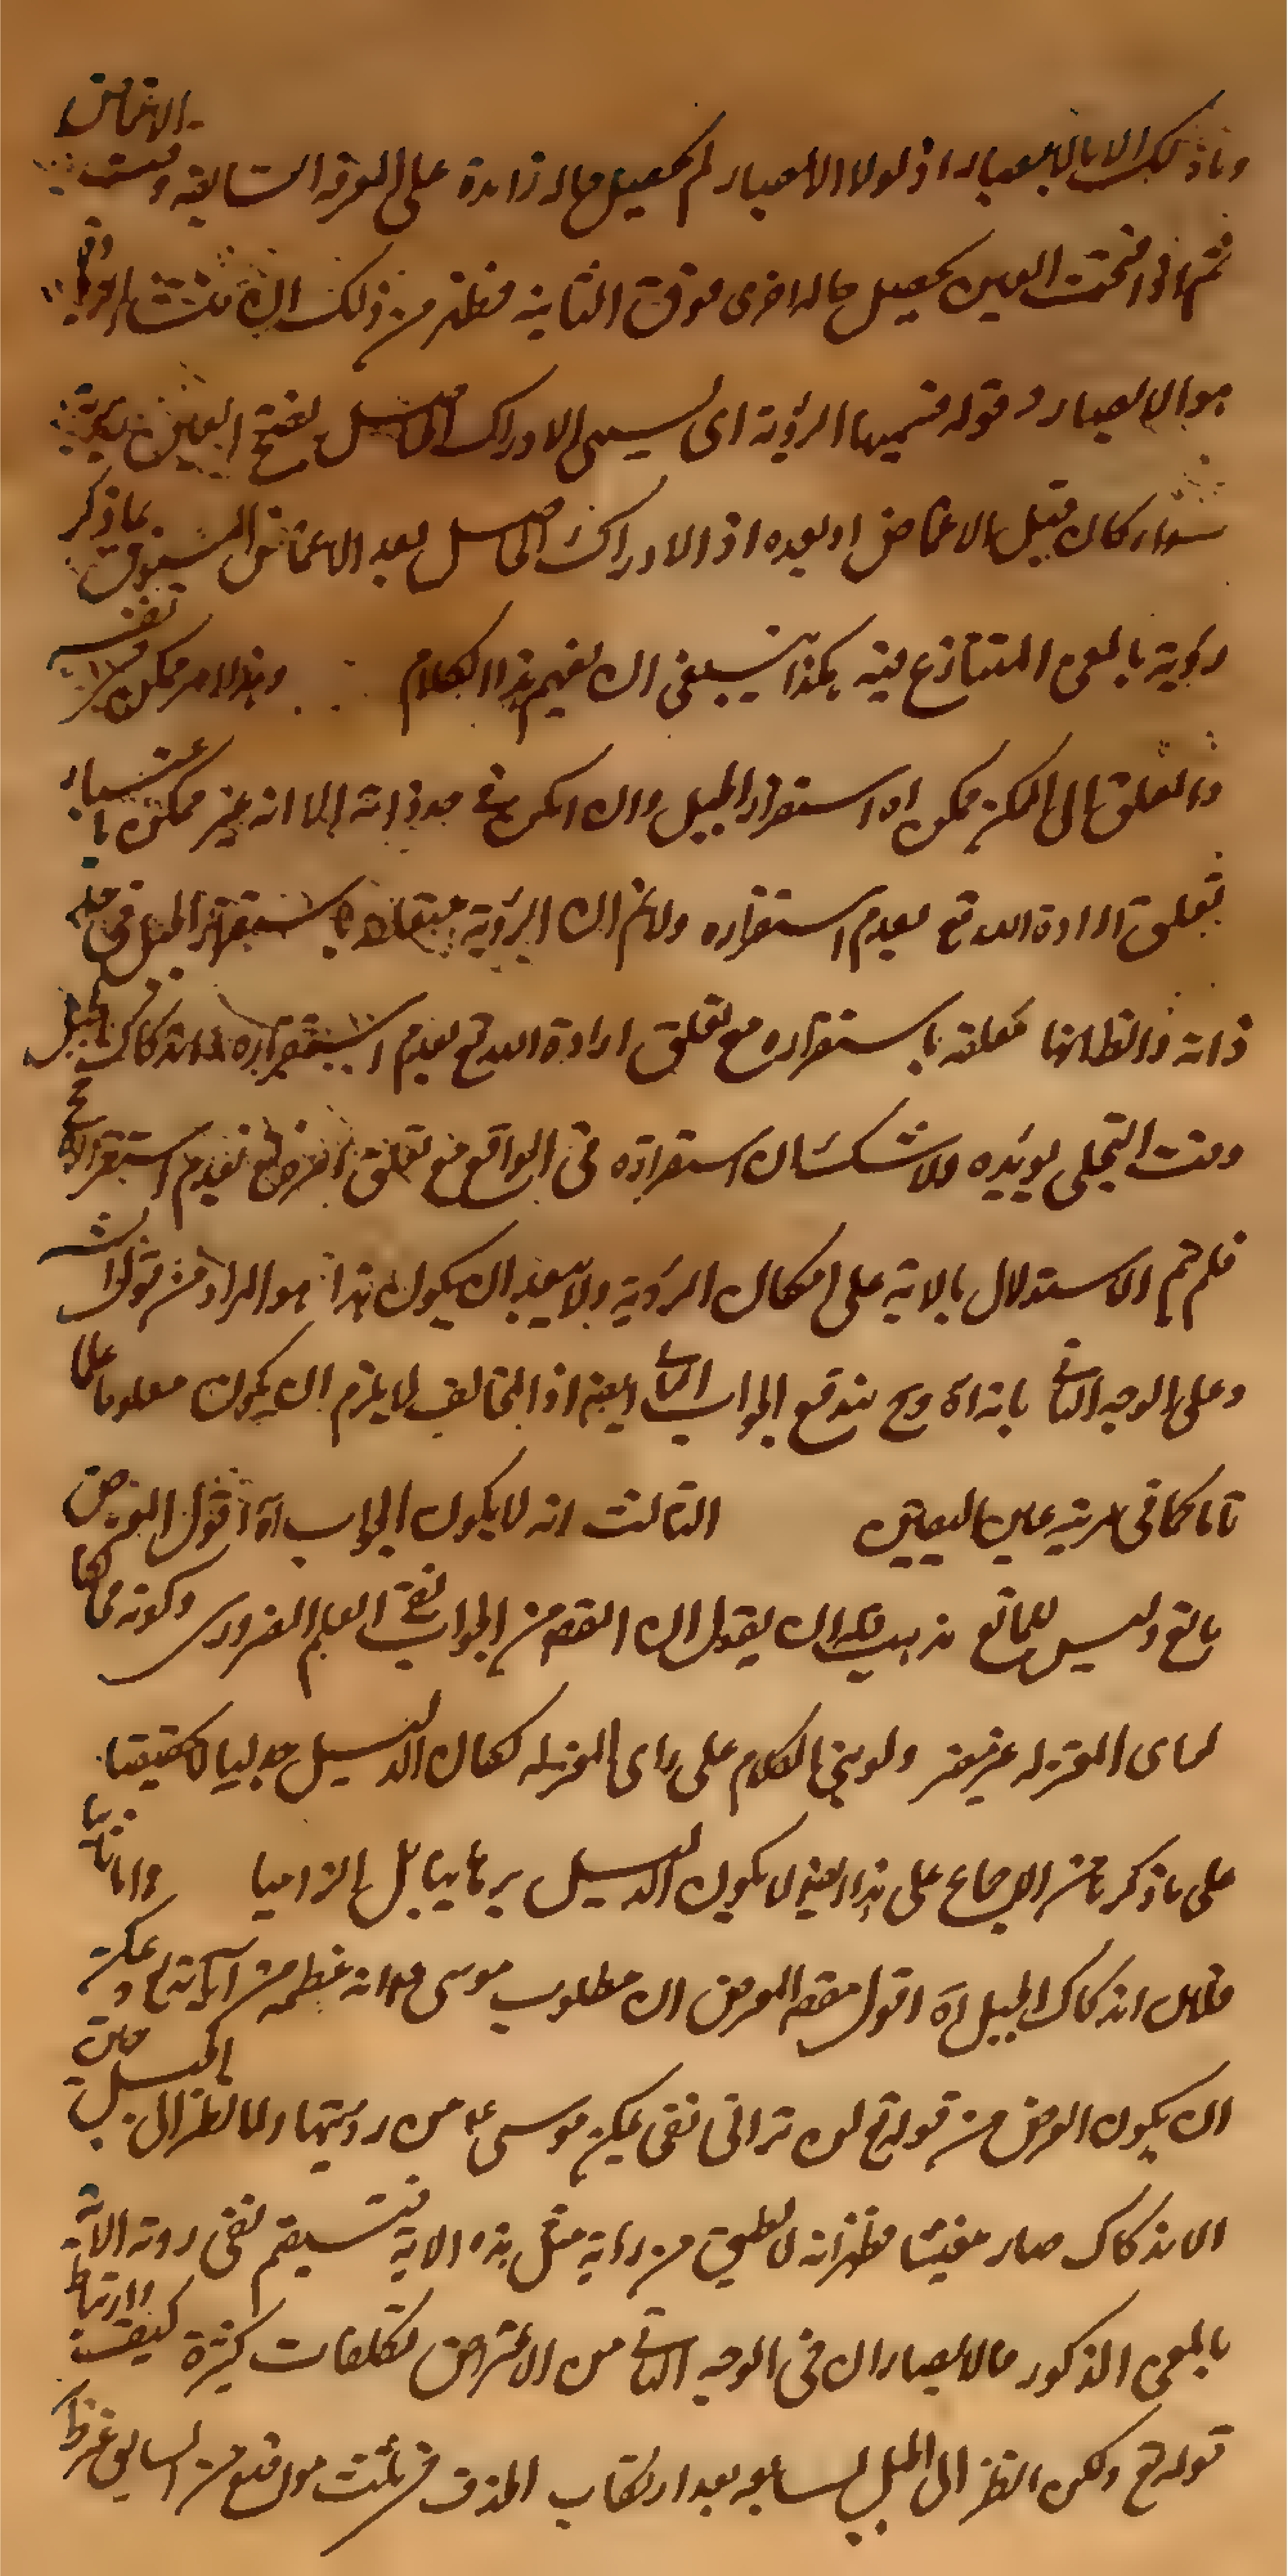 وما ذلك الا بالابصار اذ لولا الابصار لم يحصل حاله زايدة على المعرفة السابقه وقت الاغماض
ثم اذا فتحت العين يحصل حاله اخرى فوق الثانيه فظهر من ذلك ان
هو الابصار قوله فنسميها الرؤية اى نسمى الادراك الحاصل بفتح العين رؤية
سواء كان قبل الاغماض او بعده اذ الادراك الحاصل بعد الاغماض المسبوق بما ذكر
رؤية بالمعنى المتنازع فيه هكذا ينبغى ان يفهم هذا الكلام وهذا امر ممكن فى نفسه
والمعلق الى الممكن ممكن اه استقرار الجبل وان امكن فى حد ذاته الا انه غير ممكن باعتبار
تعلق ارادة الله تع بعدم استقراره ولانم ان الرؤية معلقة باستقرار الجبل فى
ذاته والظ انها معلقه باستقراره مع تعلق ارادة الله تع بعدم استقراره اندكاك الجبل
وقت التجلى يؤيده ولا شك ان استقراره فى الواقع مع تعلق بعدم استقراره مح
فلم تم الاستدلال بالاية على امكان الرؤية ولا يبعد ان يكون هذا هو المراد من قوله
وعلى الوجه الثانى بانه اه وح يندفع الجواب الثانى ايضا اذ المخالف لا يلزم ان يكون معلوما علما
تاما كما فى مرتبة عين اليقين الثالث انه لا يكون الجواب اه اقول المعرض
مانع وليس للمانع مذهب فله ان يقول ان الغرض من الجواب نفى العلم الضرورى وكونه مخالفا
لراى المعتزله غير مضر ولو بنى الكلام على راى المعتزله لكان الدليل جدليا لا تحقيقيا
على ما ذكر من الاجماع على هذا ايضا لا يكون الدليل برهانيا بل الزاميا واما ثانيا
فلان اندكاك الجبل اه اقول مقصود المعرض ان مطلوب موسى عظيمه من آياته تع ويمكن
ان يكون الغرض من قوله تع لن ترانى نفى تمكن موسى عم من رؤيتها ولما نظر الى الجبل حين
الاندكاك صار مغشيا فظهر انه لا يطيق من رؤية مثل هذه الاية فيستقيم نفى رؤية الاية
بالمعنى المذكور فالابصار ان فى الوجه الثانى من الاعتراض تكلفات كثيرة كيف وارتباط
قوله تع ولكن انظر الى الجبل لسابقه بعد ارتكاب الحذف فى ثلث مواقع من السابق غير ظ